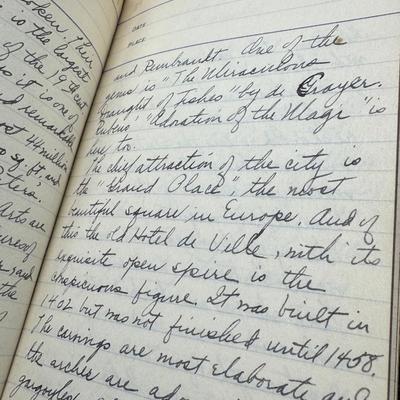 oken. Thi
is the largest
of the 19th cent
s it is one of
nd remarkable
ost 44 million
sq. ft. and
ter's.
Arts are
ures of
, and
the
DATE
PLACE
and Rembrandt. One of the
gems is "The Miraculous
Draught of Fishes" by de Crayer.
Rubens' "Adoration of the Magi" is
here too.
The chief attraction of the city is
the "Grand Place", the most
beautiful square in Europe. And of
this the old Hotel de Ville, with its
exquisite open spire is the
conspicuous figure. It was built in
1402 but was not finished until 1458.
The carvings are most elaborate and
the arches are
gargoyles